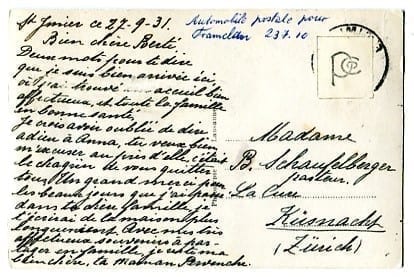 St Imier ce 27-9-31.
Bien chère Berti,
Deux mots pour te dire
que je suis bien arrivée ici
où j'ai trouvé accueil bien
affectueux, et toute la famille
en bonne santé,
Je crois avoir oublié de dire
adieu à Anna, tu veux bien
m'excuser auprès d'elle, c'était
le chagrin de vous quitter
tous. Un grand merci pour
les beaux jours que j'ai passé
dans ta chère famille, je
longuement. Avec mes
affectueux souvenirs à
en famille, je
ta maman
Automobile postale pour
Tramelan 237.10
PCo
Lausanne
Madame
B. Schaufelberger
pasteur.
La Cure
Küsnacht
(Zürich)